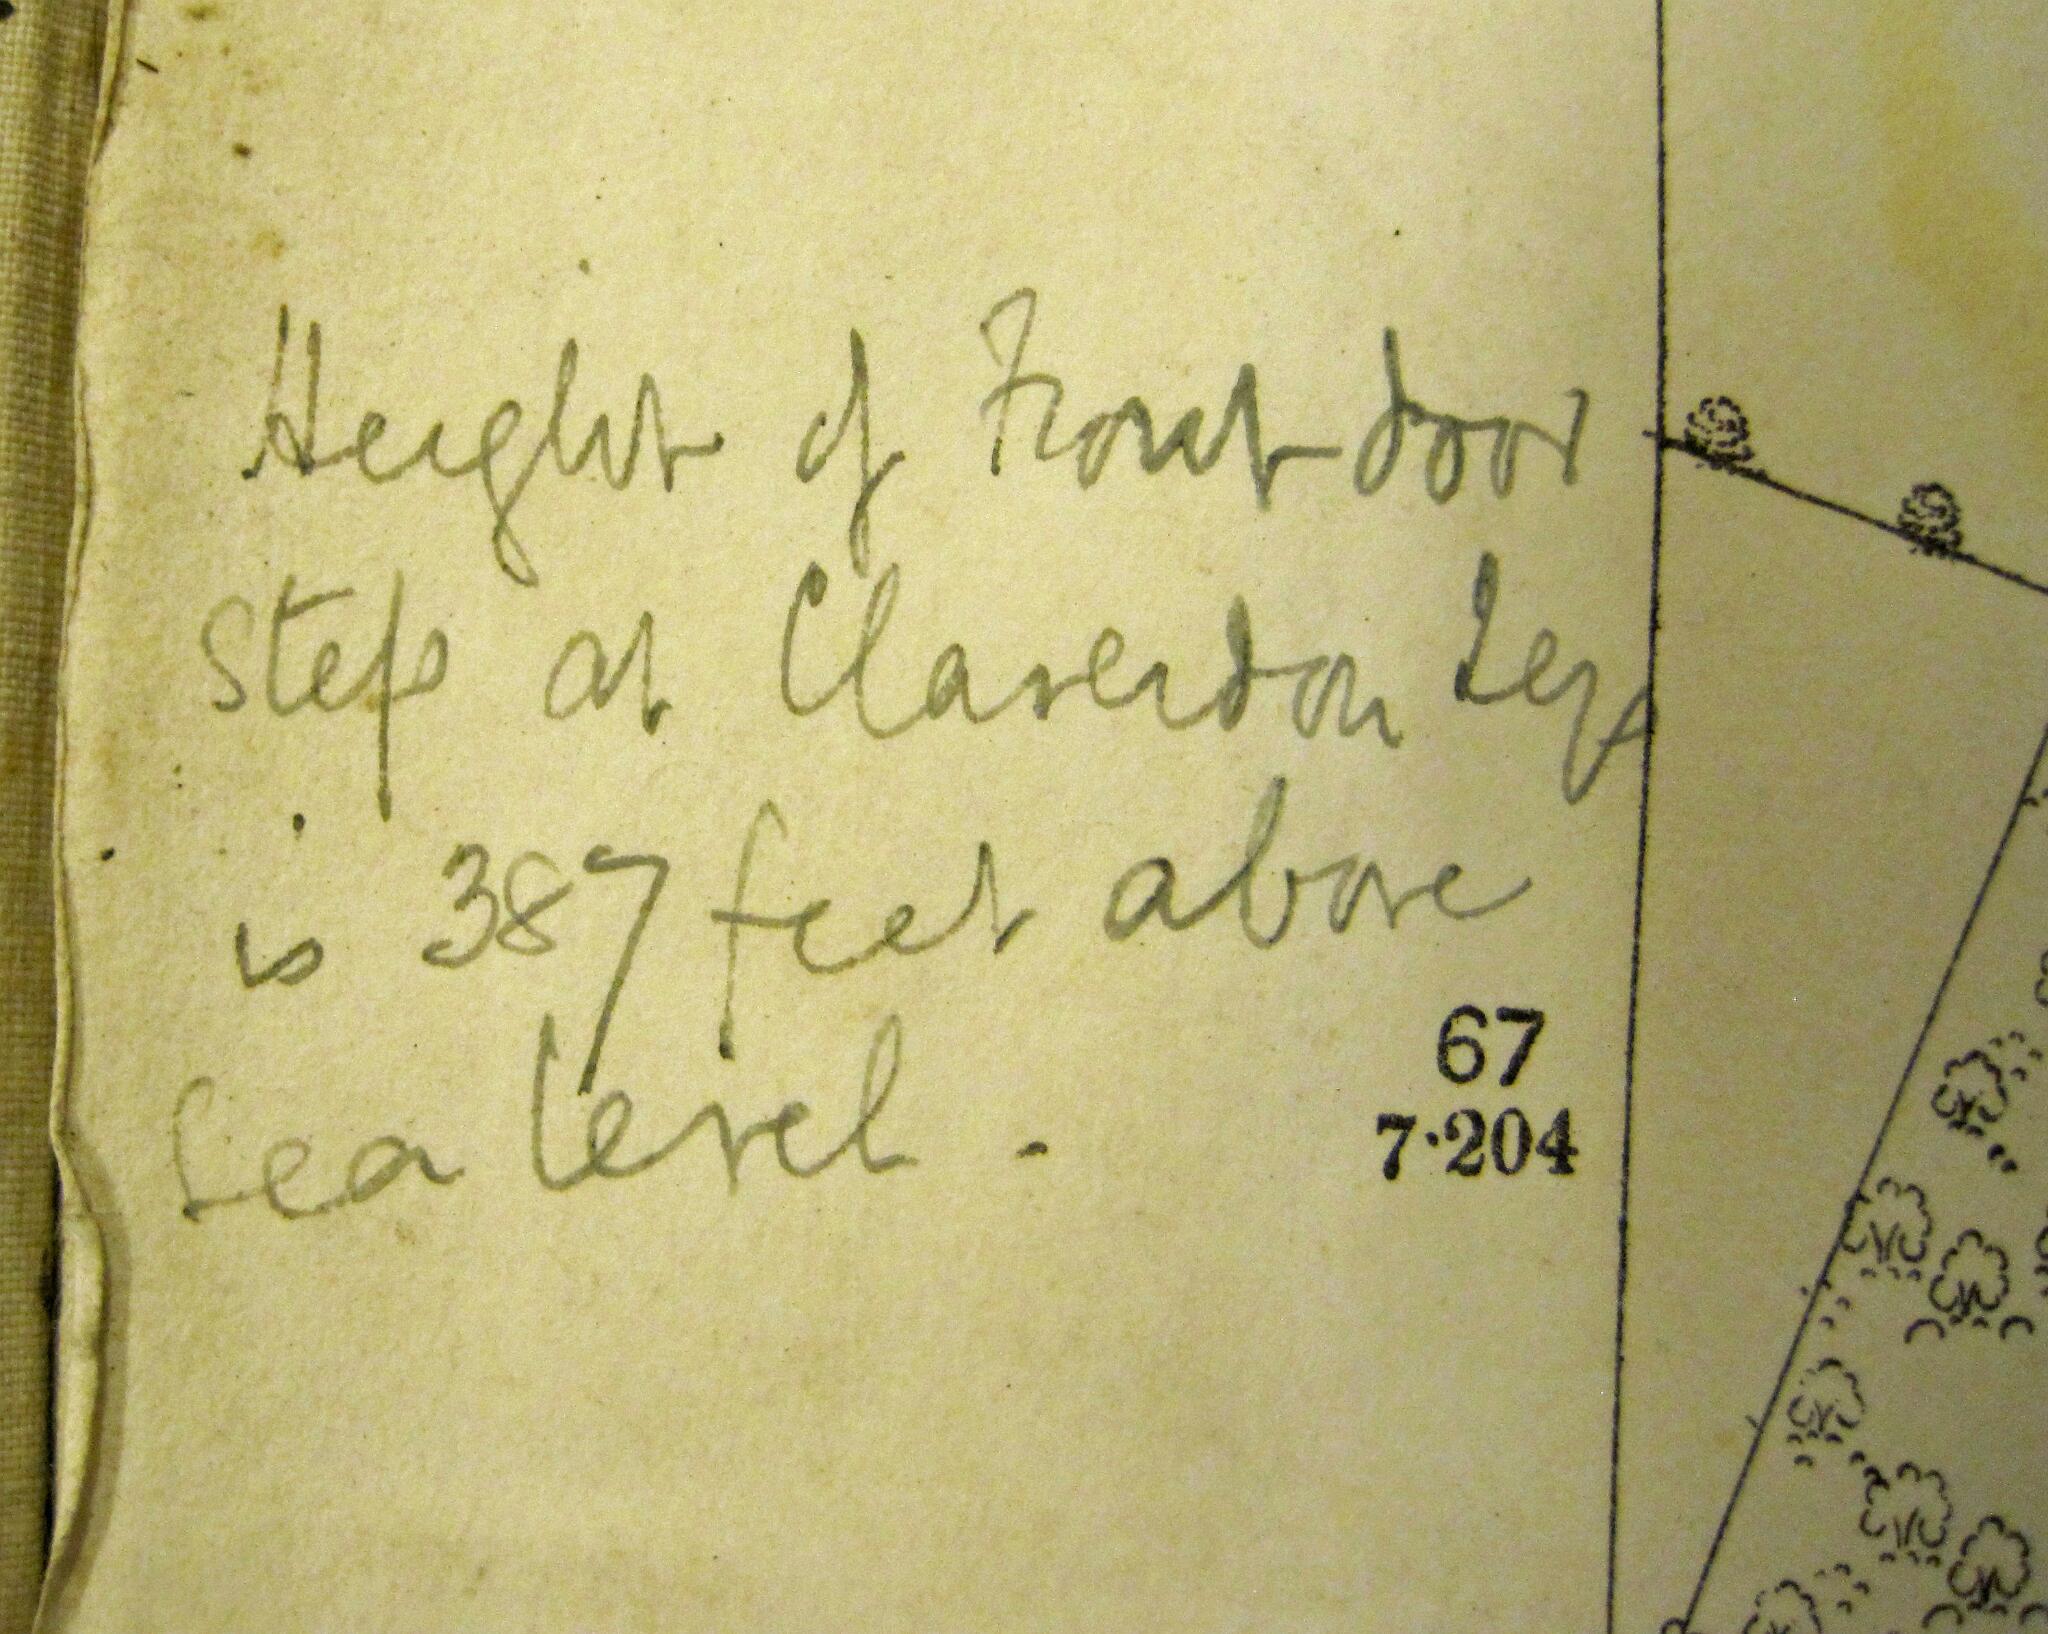 Height of Front door
step at Claverdon Leys
is 387 feet above
Sea level.
67
7·204